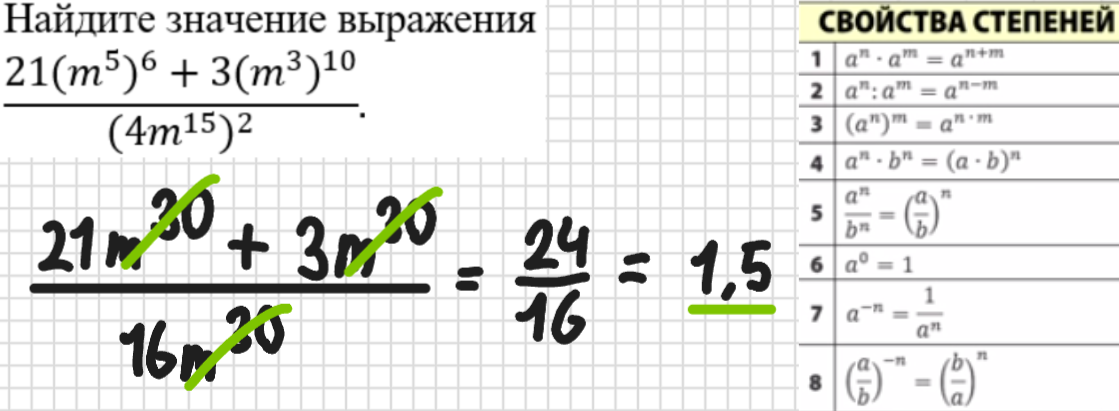 Найдите значение выражения
21(m⁵)⁶ + 3(m³)¹⁰
(4m¹⁵)²
.
21m³⁰ + 3m³⁰
16m³⁰
= 24/16 = 1,5
СВОЙСТВА СТЕПЕНЕЙ
1 aⁿ · aᵐ = aⁿ⁺ᵐ
2 aⁿ : aᵐ = aⁿ⁻ᵐ
3 (aⁿ)ᵐ = aⁿ˙ᵐ
4 aⁿ · bⁿ = (a · b)ⁿ
5 aⁿ/bⁿ = (a/b)ⁿ
6 a⁰ = 1
7 a⁻ⁿ = 1/aⁿ
8 (a/b)⁻ⁿ = (b/a)ⁿ